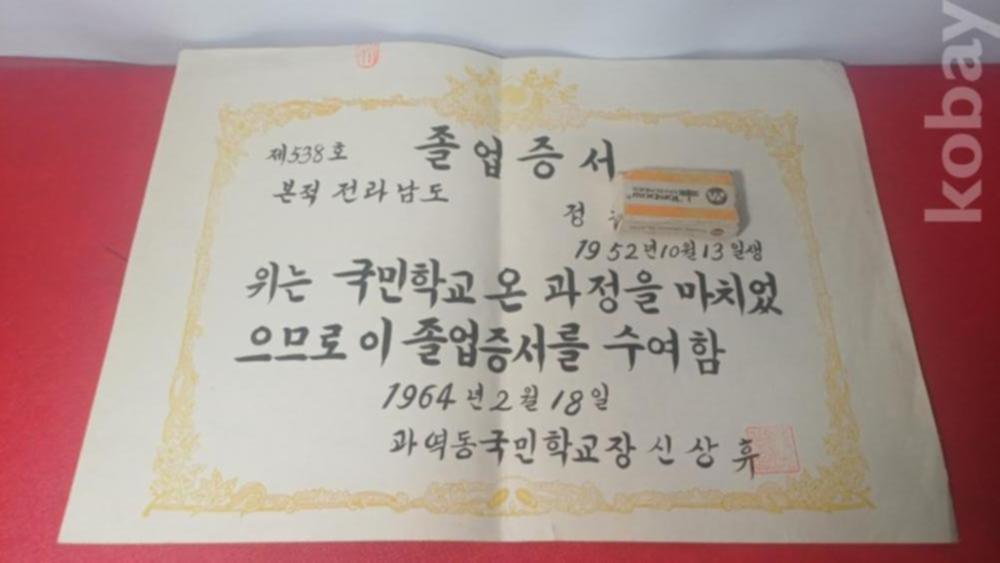 제538호 졸업증서
본적 전라남도
정
1952년10월13일생
위는 국민학교 온 과정을 마치었
으므로 이 졸업증서를 수여함
1964년2월18일
과역동국민학교장 신상휴
kobay